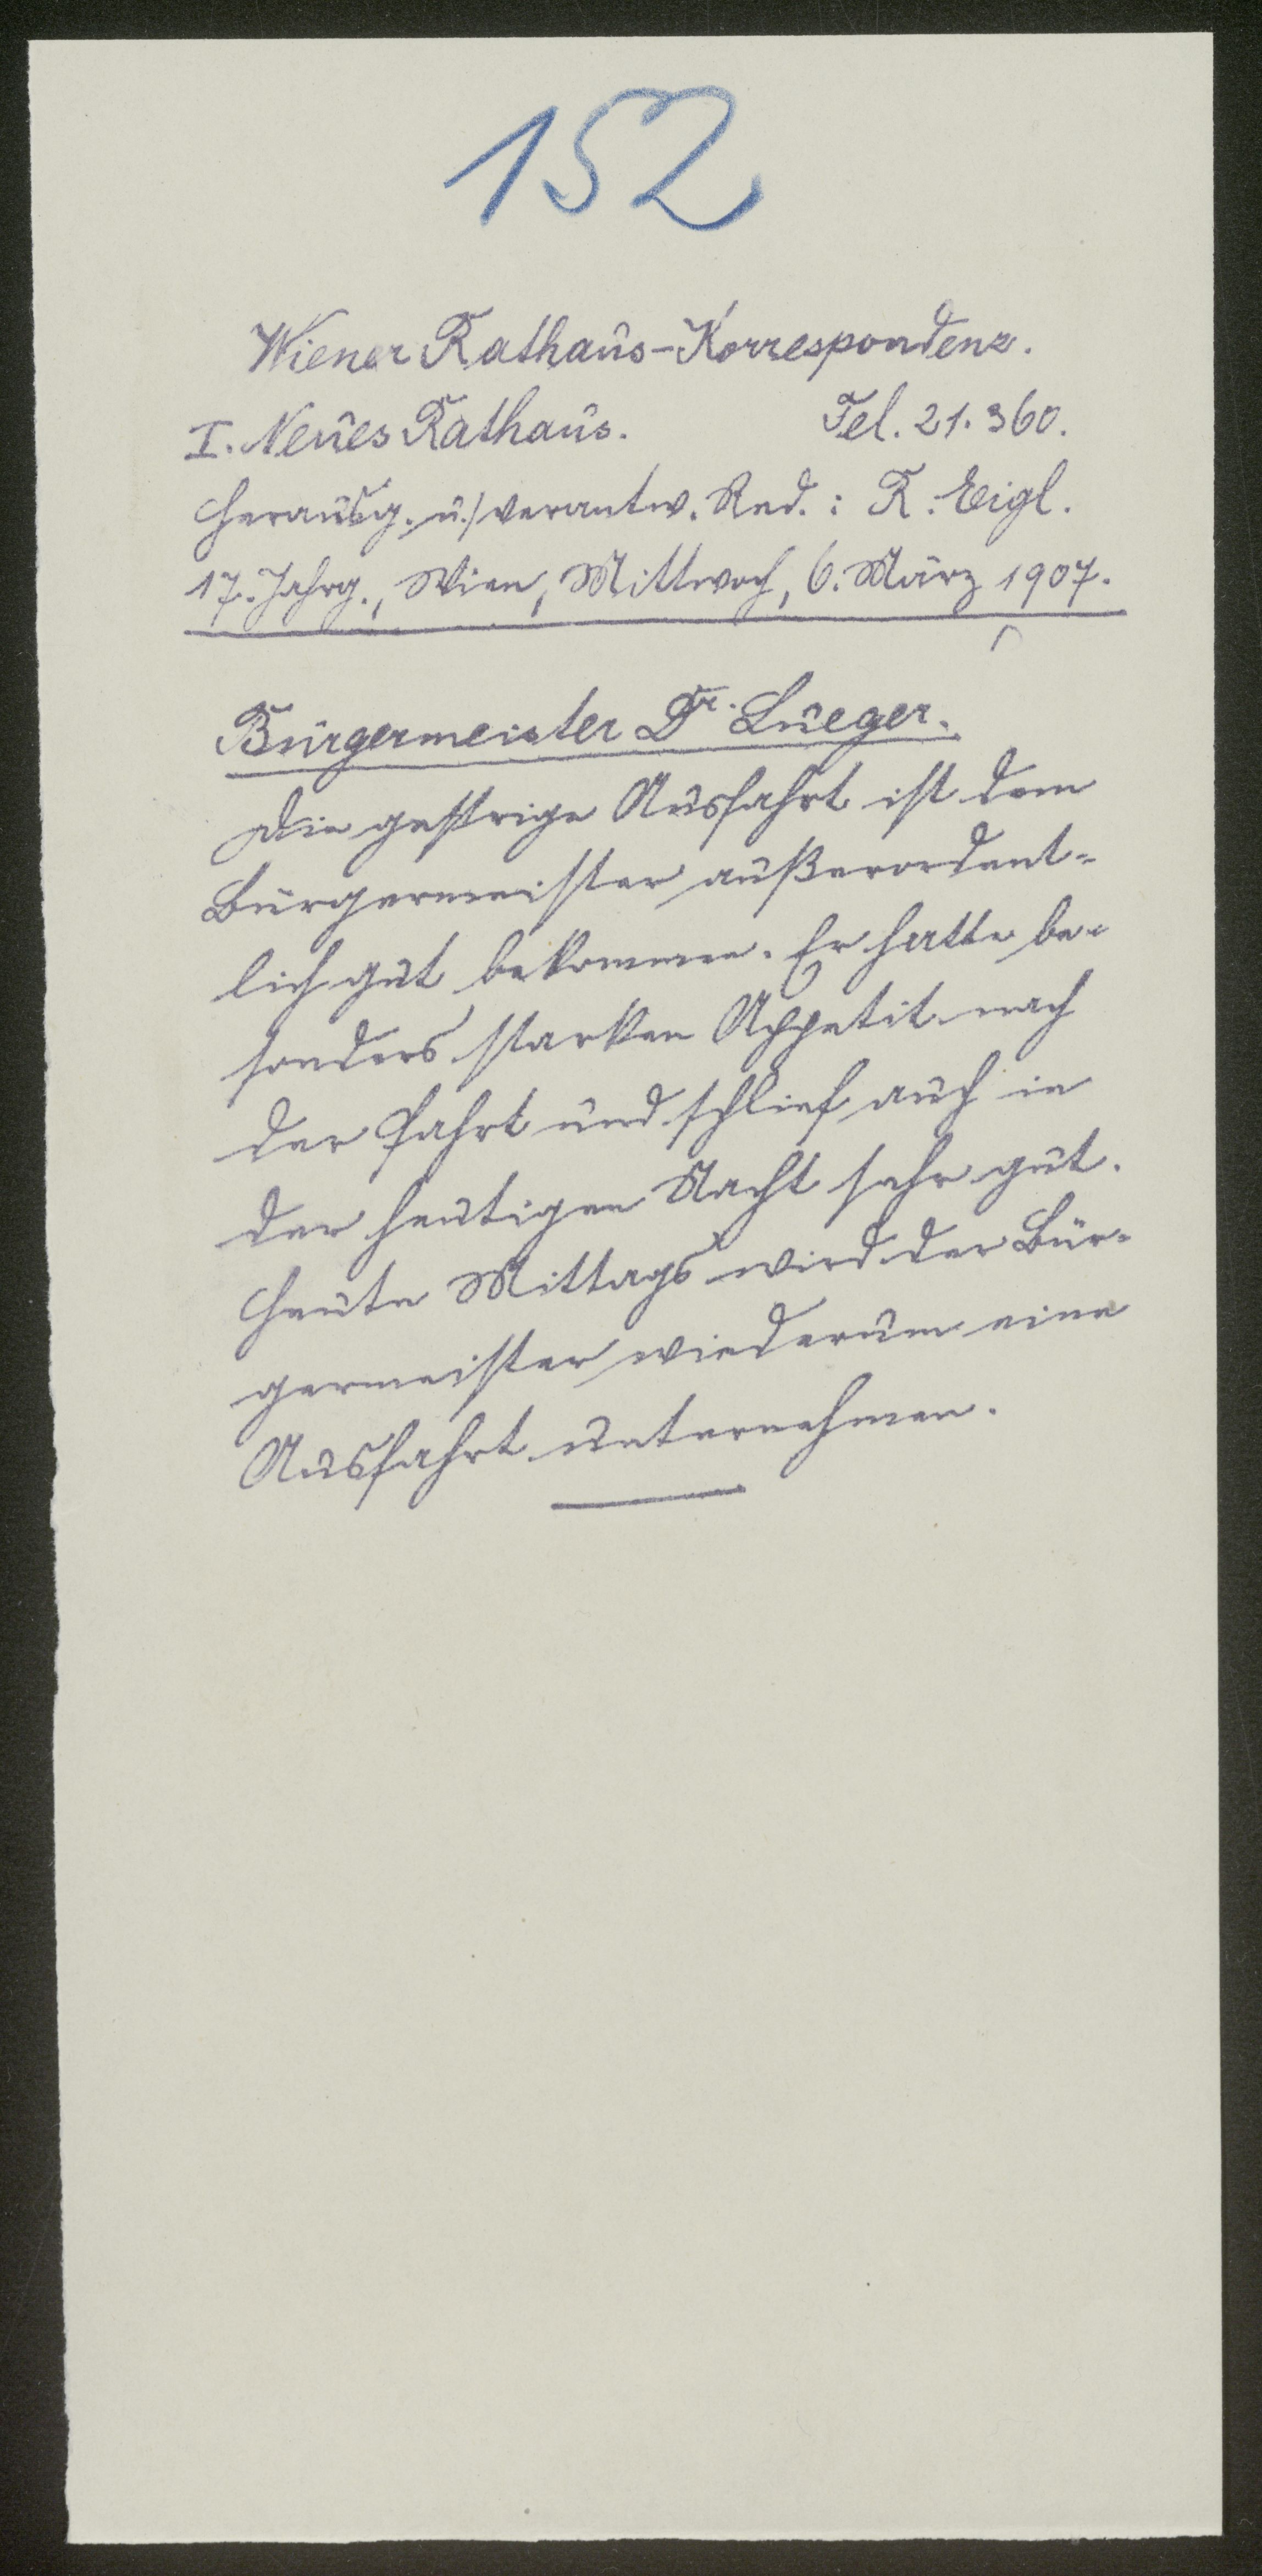 152
Wiener Rathaus-Korrespondenz.
I. Neues Rathaus. Tel. 21.360.
Herausg. u. verantw. Red.: R. Eigl.
17. Jahrg., Wien, Mittwoch, 6. März 1907.
Bürgermeister Dr. Lueger.
Die gestrige Ausfahrt ist dem
Bürgermeister außerordent-
lich gut bekommen. Er hatte be-
sonders starken Appetit nach
der Fahrt und schlief auch in
der heutigen Nacht sehr gut.
Heute Mittags wird der Bür-
germeister wiederum eine
Ausfahrt unternehmen.